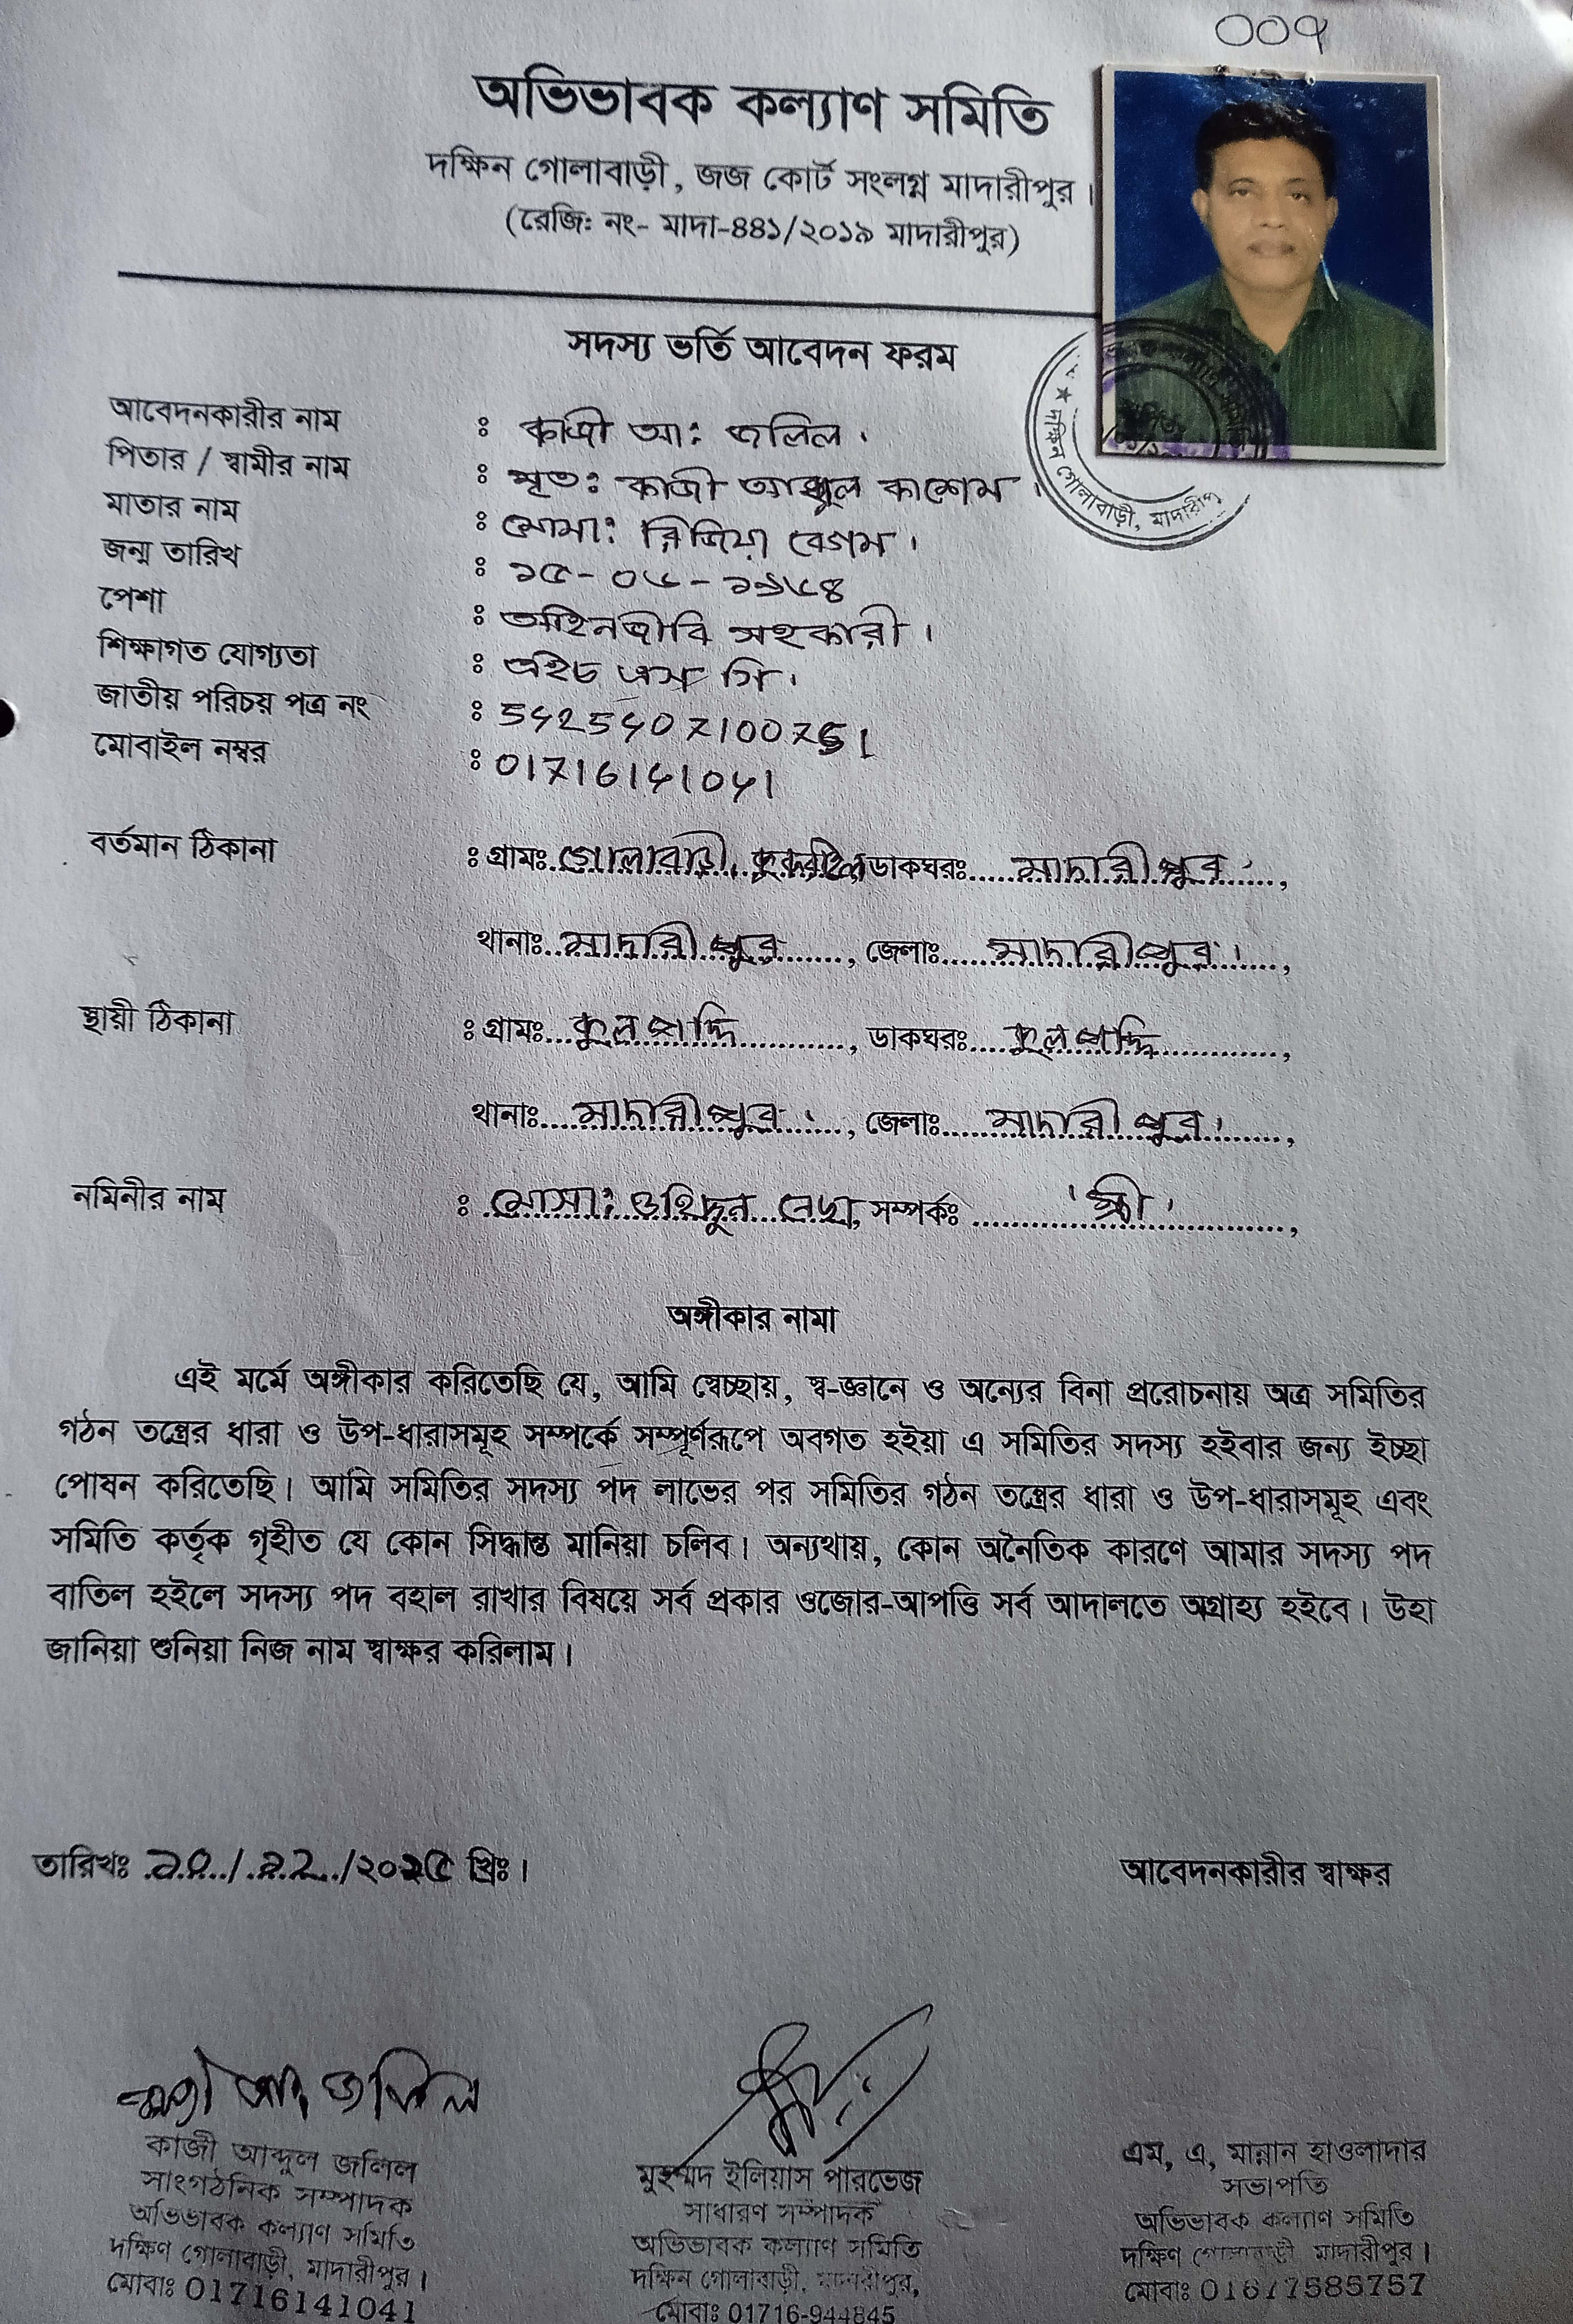 ০০৭
অভিভাবক কল্যাণ সমিতি
দক্ষিন গোলাবাড়ী, জজ কোর্ট সংলগ্ন মাদারীপুর।
(রেজিঃ নং- মাদা-৪৪১/২০১৯ মাদারীপুর)
সদস্য ভর্তি আবেদন ফরম
দক্ষিন গোলাবাড়ী, মাদারীপুর
আবেদনকারীর নাম : কাজী আ: জলিল।
পিতার / স্বামীর নাম : মৃত: কাজী আবুল কাশেম।
মাতার নাম : মোসা: রিজিয়া বেগম।
জন্ম তারিখ : ১৫-০৬-১৯৬৪
পেশা : আইনজীবি সহকারী।
শিক্ষাগত যোগ্যতা : এইচ এস সি।
জাতীয় পরিচয় পত্র নং :
মোবাইল নম্বর : 01716141041
বর্তমান ঠিকানা : গ্রামঃ গোলাবাড়ী, ডাকঘরঃ মাদারীপুর,
থানাঃ মাদারীপুর, জেলাঃ মাদারীপুর।,
স্থায়ী ঠিকানা : গ্রামঃ কুলপদ্দি, ডাকঘরঃ কুলপদ্দি,
থানাঃ মাদারীপুর, জেলাঃ মাদারীপুর।,
নমিনীর নাম : মোসা: ওহিদুন নেছা, সম্পর্কঃ 'স্ত্রী',
অঙ্গীকার নামা
এই মর্মে অঙ্গীকার করিতেছি যে, আমি স্বেচ্ছায়, স্ব-জ্ঞানে ও অন্যের বিনা প্ররোচনায় অত্র সমিতির
গঠন তন্ত্রের ধারা ও উপ-ধারাসমূহ সম্পর্কে সম্পূর্ণরূপে অবগত হইয়া এ সমিতির সদস্য হইবার জন্য ইচ্ছা
পোষন করিতেছি। আমি সমিতির সদস্য পদ লাভের পর সমিতির গঠন তন্ত্রের ধারা ও উপ-ধারাসমূহ এবং
সমিতি কর্তৃক গৃহীত যে কোন সিদ্ধান্ত মানিয়া চলিব। অন্যথায়, কোন অনৈতিক কারণে আমার সদস্য পদ
বাতিল হইলে সদস্য পদ বহাল রাখার বিষয়ে সর্ব প্রকার ওজোর-আপত্তি সর্ব আদালতে অগ্রাহ্য হইবে। উহা
জানিয়া শুনিয়া নিজ নাম স্বাক্ষর করিলাম।
তারিখঃ /২০২৫ খ্রিঃ।
আবেদনকারীর স্বাক্ষর
কাজী আব্দুল জলিল
সাংগঠনিক সম্পাদক
অভিভাবক কল্যাণ সমিতি
দক্ষিণ গোলাবাড়ী, মাদারীপুর।
মোবাঃ 01716141041
মুহম্মদ ইলিয়াস পারভেজ
সাধারণ সম্পাদক
অভিভাবক কল্যাণ সমিতি
দক্ষিন গোলাবাড়ী, মাদারীপুর,
মোবাঃ 01716-944845
এম, এ, মান্নান হাওলাদার
সভাপতি
অভিভাবক কল্যাণ সমিতি
দক্ষিণ গোলাবাড়ী মাদারীপুর।
মোবাঃ